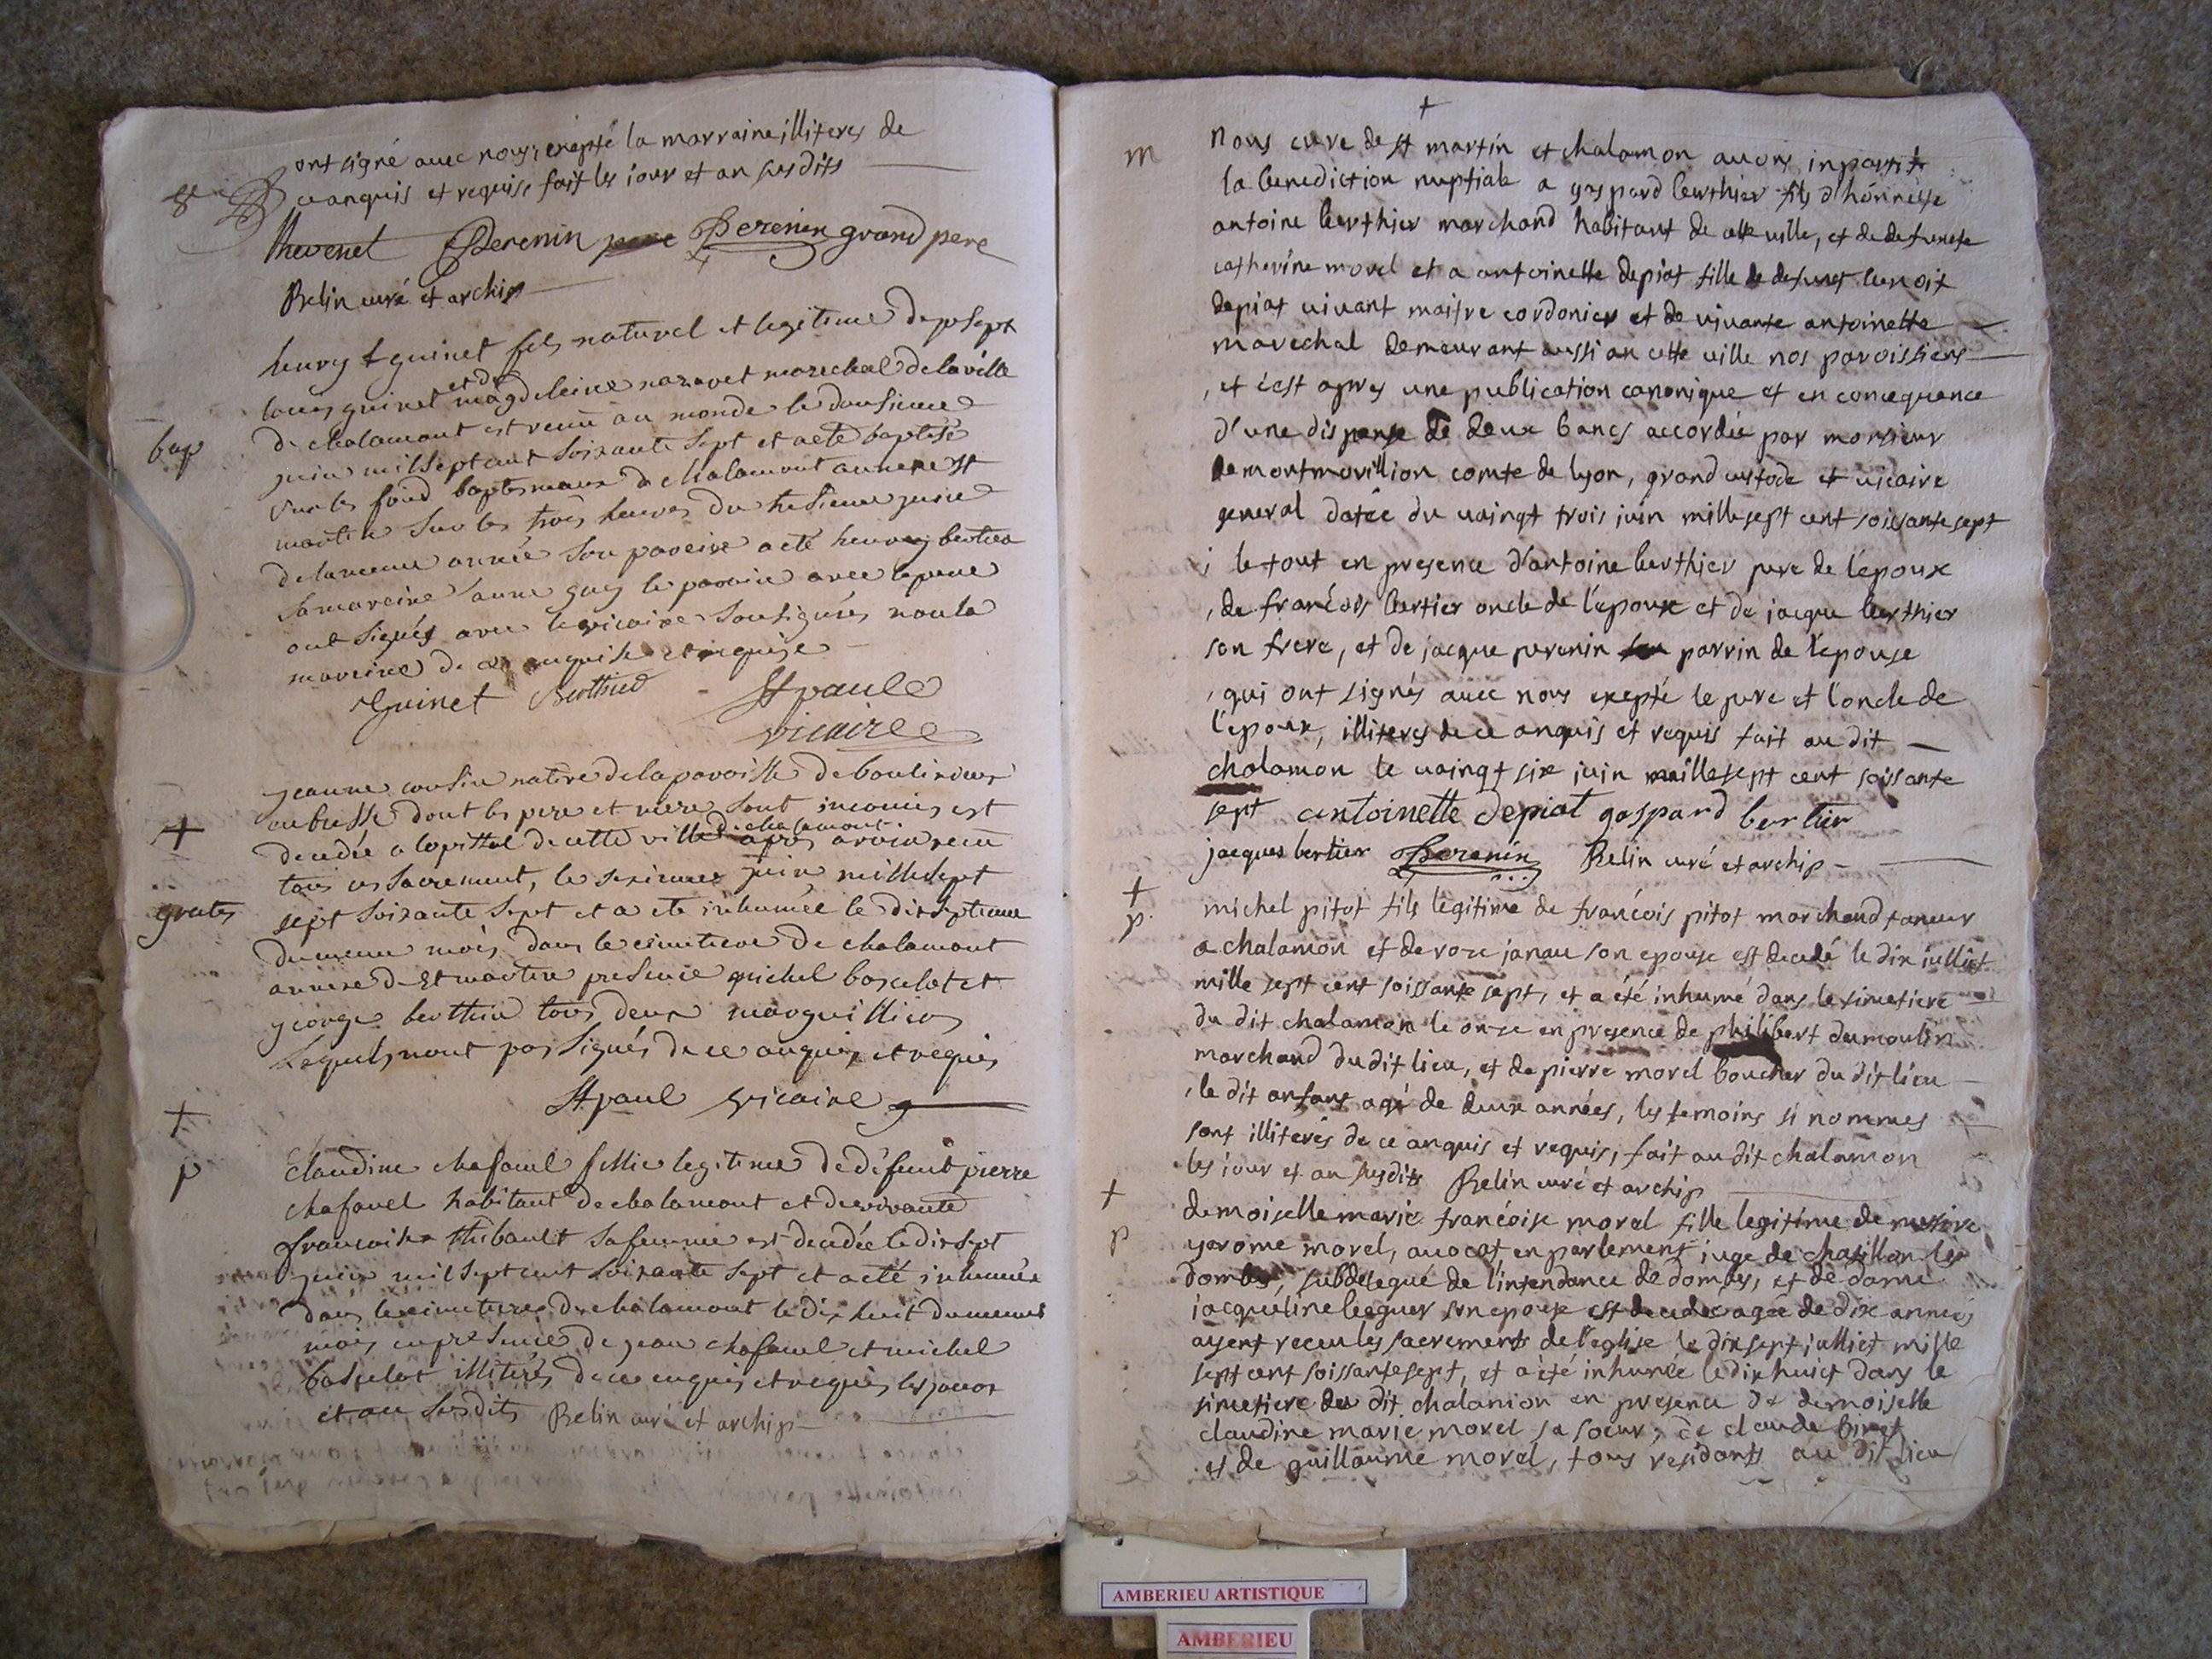 ont signé avec nous, exepté la marraine illiteres de
ce anquis et requise fait les iour et an susdits
8e
thevenet Perenin pere Perenin grand pere
Relin curé et archip
henry guinet fils naturel et legitime de joseph
louis guinet et de magdeleine naravet marechal de la ville
bap
de chalamont est venu au monde le dousieme
juin mil sept cent soixante sept et a eté baptisé
sur les fond baptismaux de chalamont annexe st
martin sur les trois heures du tresieme juin
de la meme année son pareine a eté henry bertier
sa mareine anne guy le parain avec le pere
ont signés avec le vicaire sousignés non la
mareine de ce enquise et requise
Guinet Berthier St paul
vicaire
jeanne cousin native de la paroisse de
en bresse dont les pere et mere sont inconnus est
decedée a lopittal de cette ville de chalamont apres avoir recu
+
tous ses sacrement, le sesieme juin mille sept
gratis
sept soixante sept et a ete inhumée le dixseptieme
du meme mois dans le cimetiere de chalamont
annexe de St martin presence michel boscelot et
george berthier tous deux marguilliers
lequels nont pas signés de ce anquis et requis
St paul vicaire
+
p
Claudine chafavel fillie legitime de defeunt pierre
chafavel habitant de chalamont et de vivante
francoise thibault sa femme est decedée le dix sept
juin mil sept cent soixante sept et a eté inhumée
dans le cimetiere de chalamont le dix huit du meme
mois en presence de jean chafavel et michel
boscelot illiterés de ce enquis et requis les jour
et an susdits Relin curé et archip
+
m
nous curé de st martin et chalamon avons inpartit
la benediction nuptiale a gaspard berthier fils d'honneste
antoine berthier marchand habitant de cette ville, et de defuncte
catherine morel et a antoinette depiat fille de defunct benoit
depiat vivant maitre cordonier et de vivante antoinette
marechal demeurant aussi an cette ville nos paroissiens
, et c'est apres une publication canonique et en consequance
d'une dispense de deux bancs accordée par monsieur
de montmorillion comte de lyon, grand custode et vicaire
general datée du vaingt trois juin mille sept cent soissante sept
; le tout en presence d'antoine berthier pere de l'epoux
, de francois bertier oncle de l'epoux et de jacque berthier
son frere, et de jacque perenin parrin de l'epouse
, qui ont signés avec nous exepté le pere et l'oncle de
l'epoux, illiteres de ce anquis et requis fait au dit
chalamon le vaingt six juin mille sept cent soissante
sept antoinette depiat gaspard bertier
jacques bertier Perenin Relin curé et archip
+
p.
michel pitot fils legitime de francois pitot marchand taneur
a chalamon et de roze janau son epouse est decedé le dix julliet
mille sept cent soissante sept, et a été inhumé dans le simetiere
du dit chalamon le onze en presence de philibert dumoulin
marchand du dit lieu, et de pierre morel boucher du dit lieu
, le dit anfant agé de deux années, les temoins si nommes
sont illiterés de ce anquis et requis, fait au dit chalamon
les iour et an susdits Relin curé et archip
+
p
demoiselle marie francoise morel fille legitime de messire
yerome morel, avocat en parlement juge de chatillon les
dombes, subdelegué de l'intendance de dombes, et de dame
jacqueline leguer son epouse est decedée agée de dix années
ayent receu les sacrements de l'eglise le dix sept julliet mille
sept cent soissante sept, et a été inhumée le dix huict dans le
simetiere du dit chalamon en presence de demoiselle
claudine marie morel sa soeur, de claude binet
et de guillaume morel, tous residants au dit lieu
AMBERIEU ARTISTIQUE
AMBERIEU